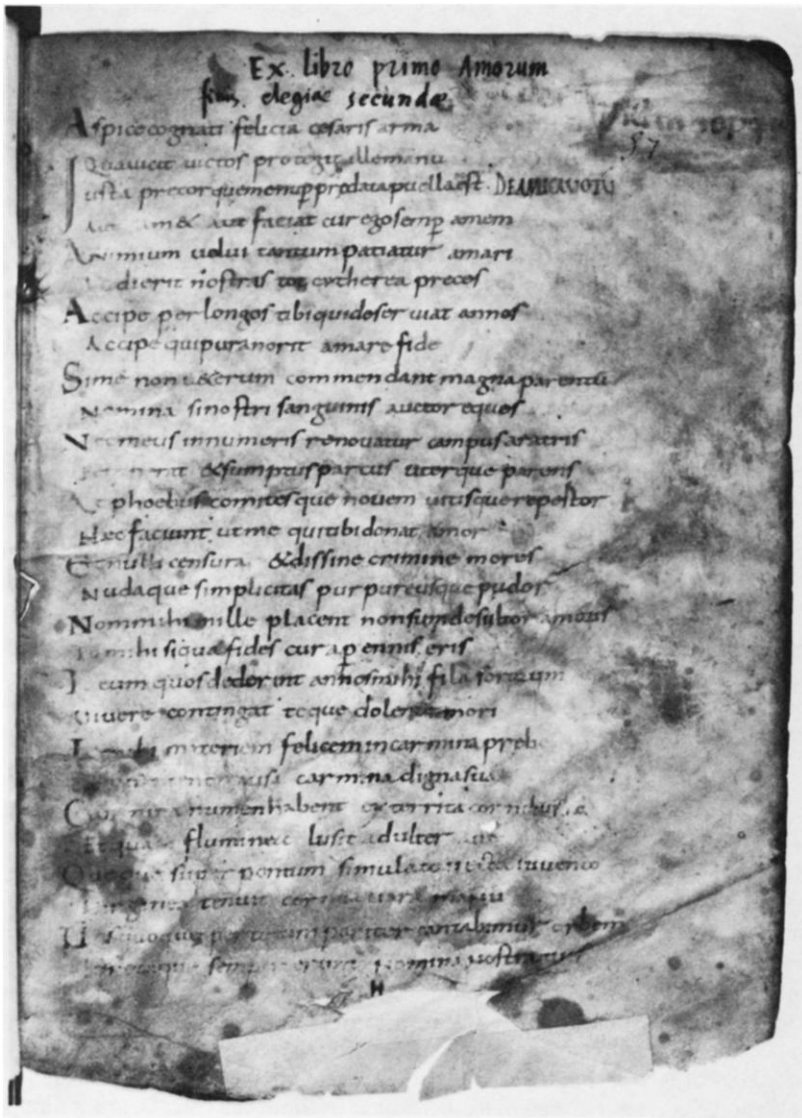 Ex libro primo Amorum
finis elegiae secundae
57
Aspice cognati felicia cesaris arma
Qua uicit uictos protegit illemanu
Iusta precor quemenup predata puella est DEAMICAUOTU
aut faciat cur ego semp amem
A nimium uolui tantum patiatur amari
dierit nostras tot cytherea preces
Accipe per longos tibi qui deseruiat annos
Accipe qui pura norit amare fide
Si me non ueterum commendant magna parentu
Nomina si nostri sanguinis auctor eques
Nec meus innumeris renouatur campus aratris
& sumptus parcus uterque parens
At phoebus comitesque nouem uitisque repertor
Haec faciunt ut me qui tibi donat amor
Et nulli censura & dissine crimine mores
Nudaque simplicitas purpureusque pudor
Non mihi mille placent non sum desultor amoris
mihi siqua fides cura pennis eris
Tecum quos dederint annos mihi fila sororum
Viuere contingat teque dolente mori
materiem felicem in carmina prebe
carmina digna suo
Carmine numen habent exterrita cornibus
Et qua flumineae lusit adulter aue
Queque super pontum simulato uecta iuuenco
Virginea tenuit cornua uara manu
Nos quoque per totum pariter cantabimur orbem
semper erunt nomina nostra tuis
H